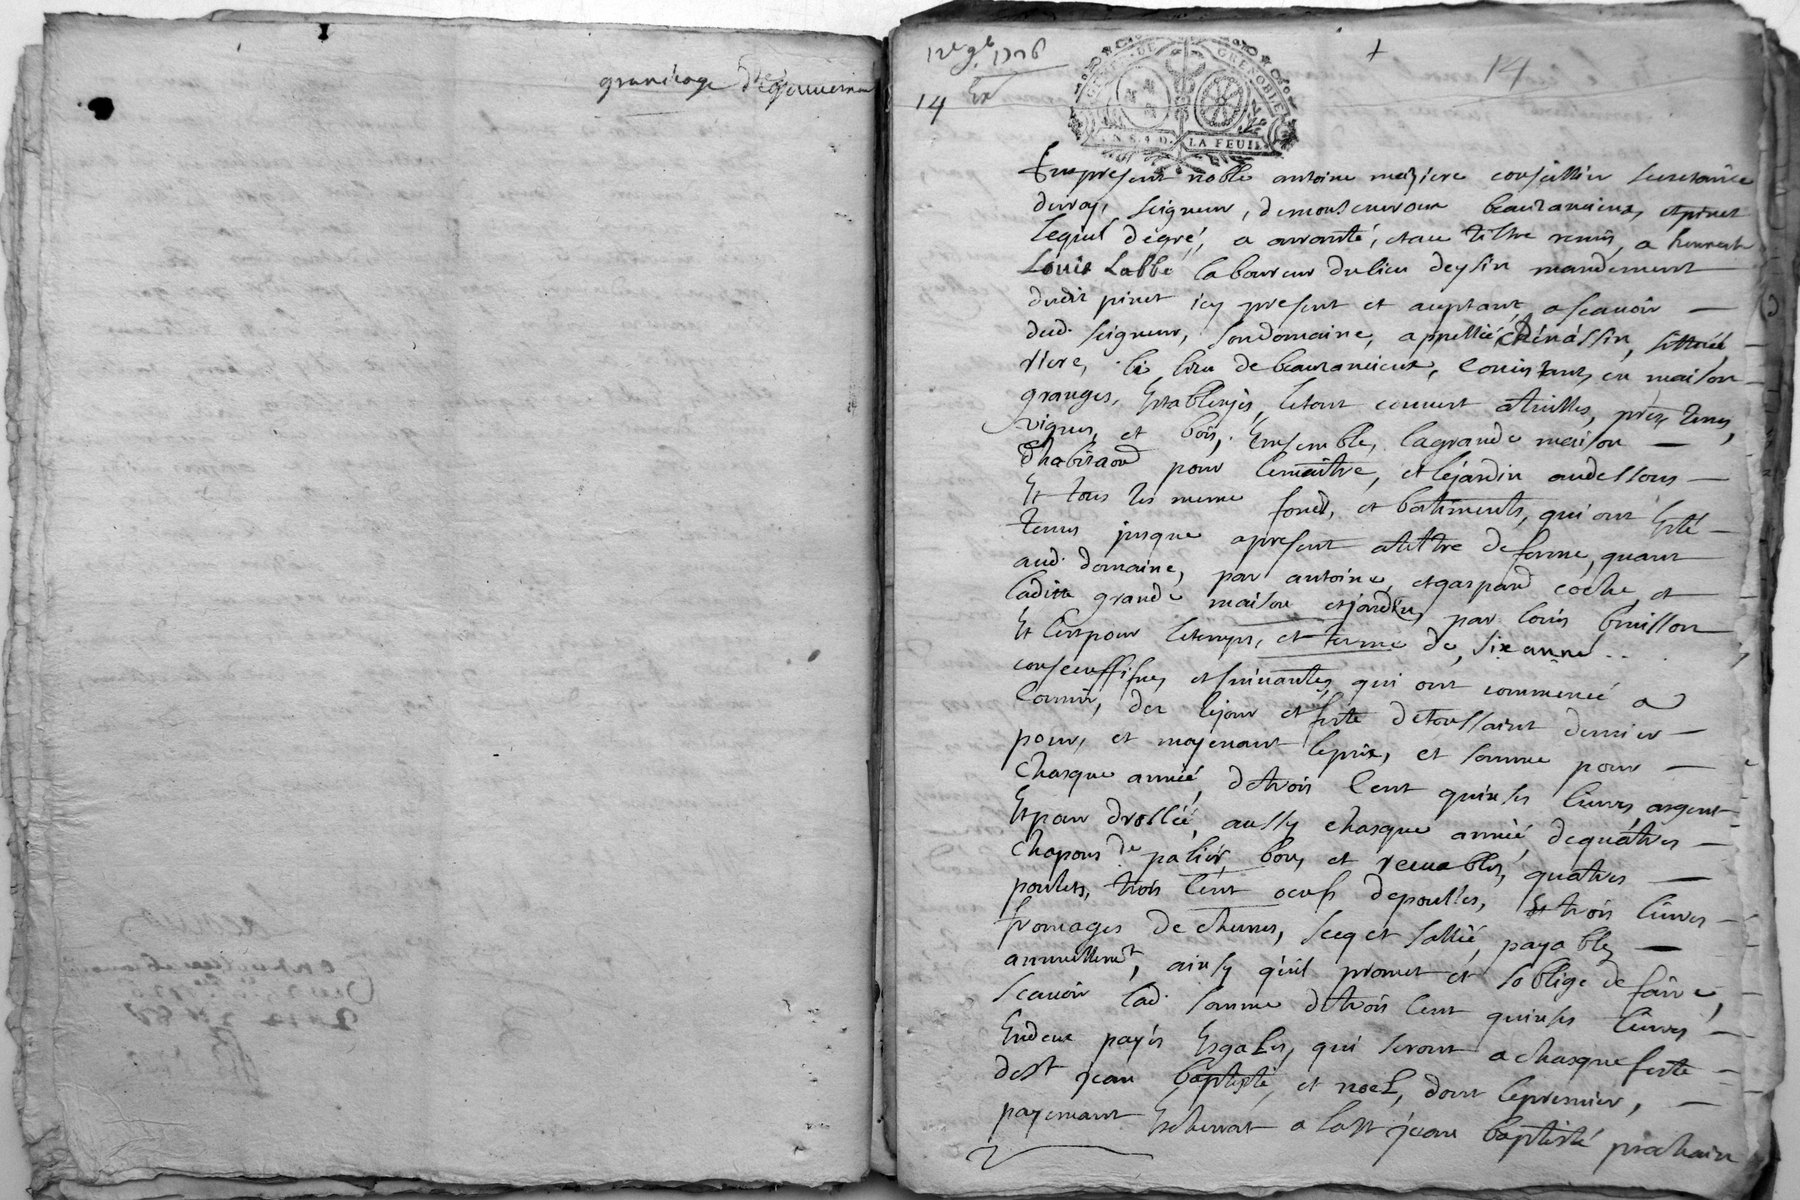 12e 9b. 1776
14
14
GRENOBLE
LA FEUIL
present noble antoine meziere conseillier secretaire
duroy, seigneur, beauvancieux, et pinet
lequel degré, a arranté, et au tiltre remis, a honneste
Louis Labbé laboureur du lieu deysin mandement
dudit pinet icy present et aceptant, ascavoir
dud. seigneur, son domaine, appellié, sittué,
riere, le lieu de beauvancieux, consistant, en maison
granges, establerjes, letout couvert atuilles, prés, terres,
vignes, et bois, ensemble, lagrande maison
dhabitaõn pour lemaitre, et lejardin audessous
Et tous les meme fond, et batiments, qui ont esté
tenus jusque apresent atiltre deferme, quant
aud. domaine, par antoine, et gaspard coche, et
laditte grande maison et jardin, par louis buisson
Et cest pour letemps, et terme de, six anné
consecuffifves, et suivantes, qui ont commencé a
courir, des lejour et feste detoussaint dernier
pour, et moyenant leprix, et somme pour
chasque année, detrois cent quinse livres, argent
Et pour drollée, aussy chasque année, dequatres
chapons de palier, bons, et recevables, quatres
poulets, trois cent oeufs depoulles, Et trois livres
fromages de chevres, secq et sallié, payables
annuellemt, ainsy quil promet et soblige de faire,
scavoir lad. somme detrois cent quinses livres
Endeux payes esgales, qui seront achasque feste
dest jean baptiste, et noel, dont lepremier,
payemant escherrat a last jean baptisté prochain